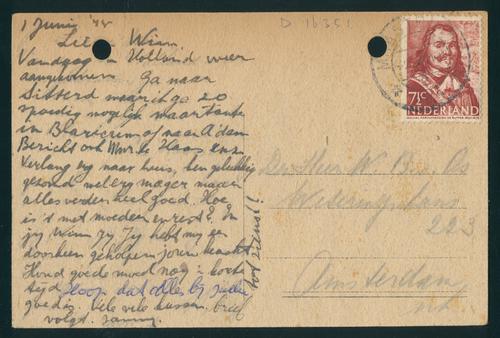 1 Juni '45
D 16351
Wim,
Vandaag in Holland weer
aangekomen Ga naar
Sittard waar ik zo
spoedig mogelijk naar tante
in Blaricum of naar A'dam
Bericht ook Mvr. de Haas enz.
Verlang erg naar huis, ben gelukkig
gezond wel erg mager maar
alles verder heel goed. Hoe
is 't met moeder en rest? En
jij Wim jij hebt mij er
doorheen geholpen jouw kracht
Houd goede moed nog 'n korte
tijd Hoop dat alles bij jullie
goed is. Vele vele kussen. brief
volgt.
Den Heer W.
Weteringschans
223
Amsterdam
7½ C
NEDERLAND